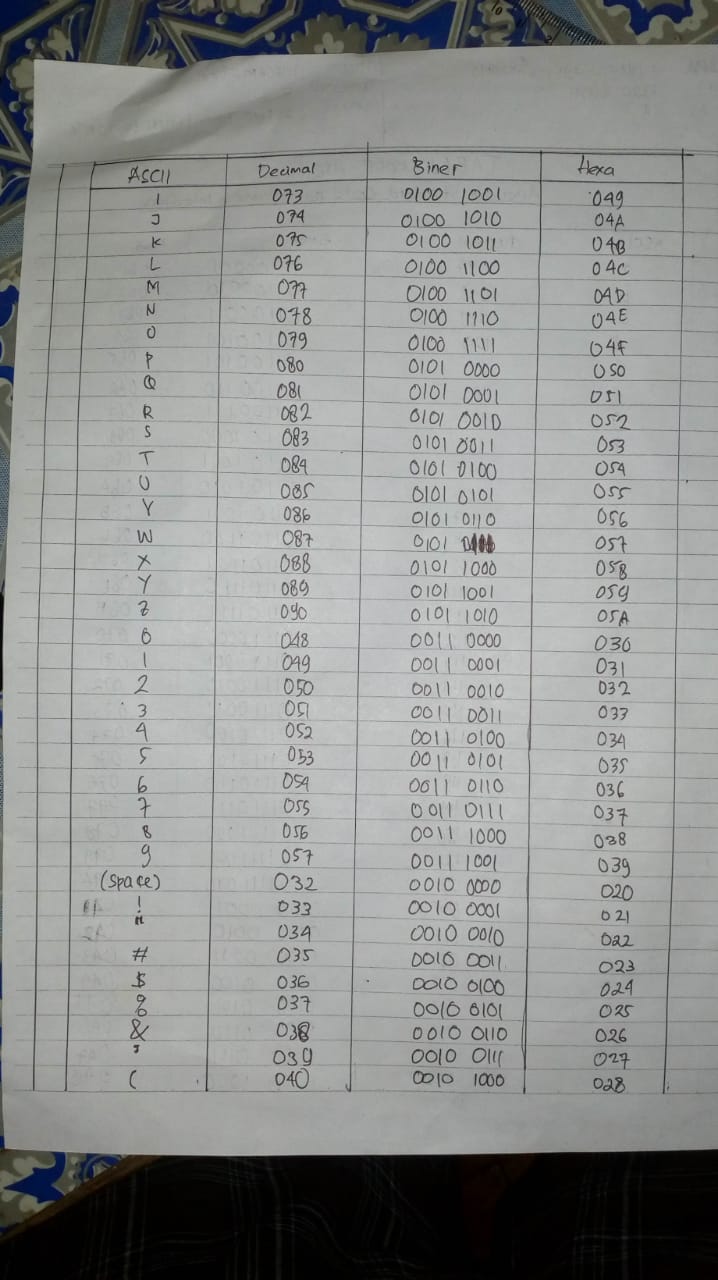 ASCII Decimal Biner Hexa
I 073 0100 1001 049
J 074 0100 1010 04A
K 075 0100 1011 04B
L 076 0100 1100 04C
M 077 0100 1101 04D
N 078 0100 1110 04E
O 079 0100 1111 04F
P 080 0101 0000 050
Q 081 0101 0001 051
R 082 0101 0010 052
S 083 0101 0011 053
T 084 0101 0100 054
U 085 0101 0101 055
Y 086 0101 0110 056
W 087 0101 057
X 088 0101 1000 058
Y 089 0101 1001 059
Z 090 0101 1010 05A
0 048 0011 0000 030
1 049 0011 0001 031
2 050 0011 0010 032
3 051 0011 0011 033
4 052 0011 0100 034
5 053 0011 0101 035
6 054 0011 0110 036
7 055 0011 0111 037
8 056 0011 1000 038
9 057 0011 1001 039
(Space) 032 0010 0000 020
! 033 0010 0001 021
" 034 0010 0010 022
# 035 0010 0011 023
$ 036 0010 0100 024
% 037 0010 0101 025
& 038 0010 0110 026
' 039 0010 0111 027
( 040 0010 1000 028